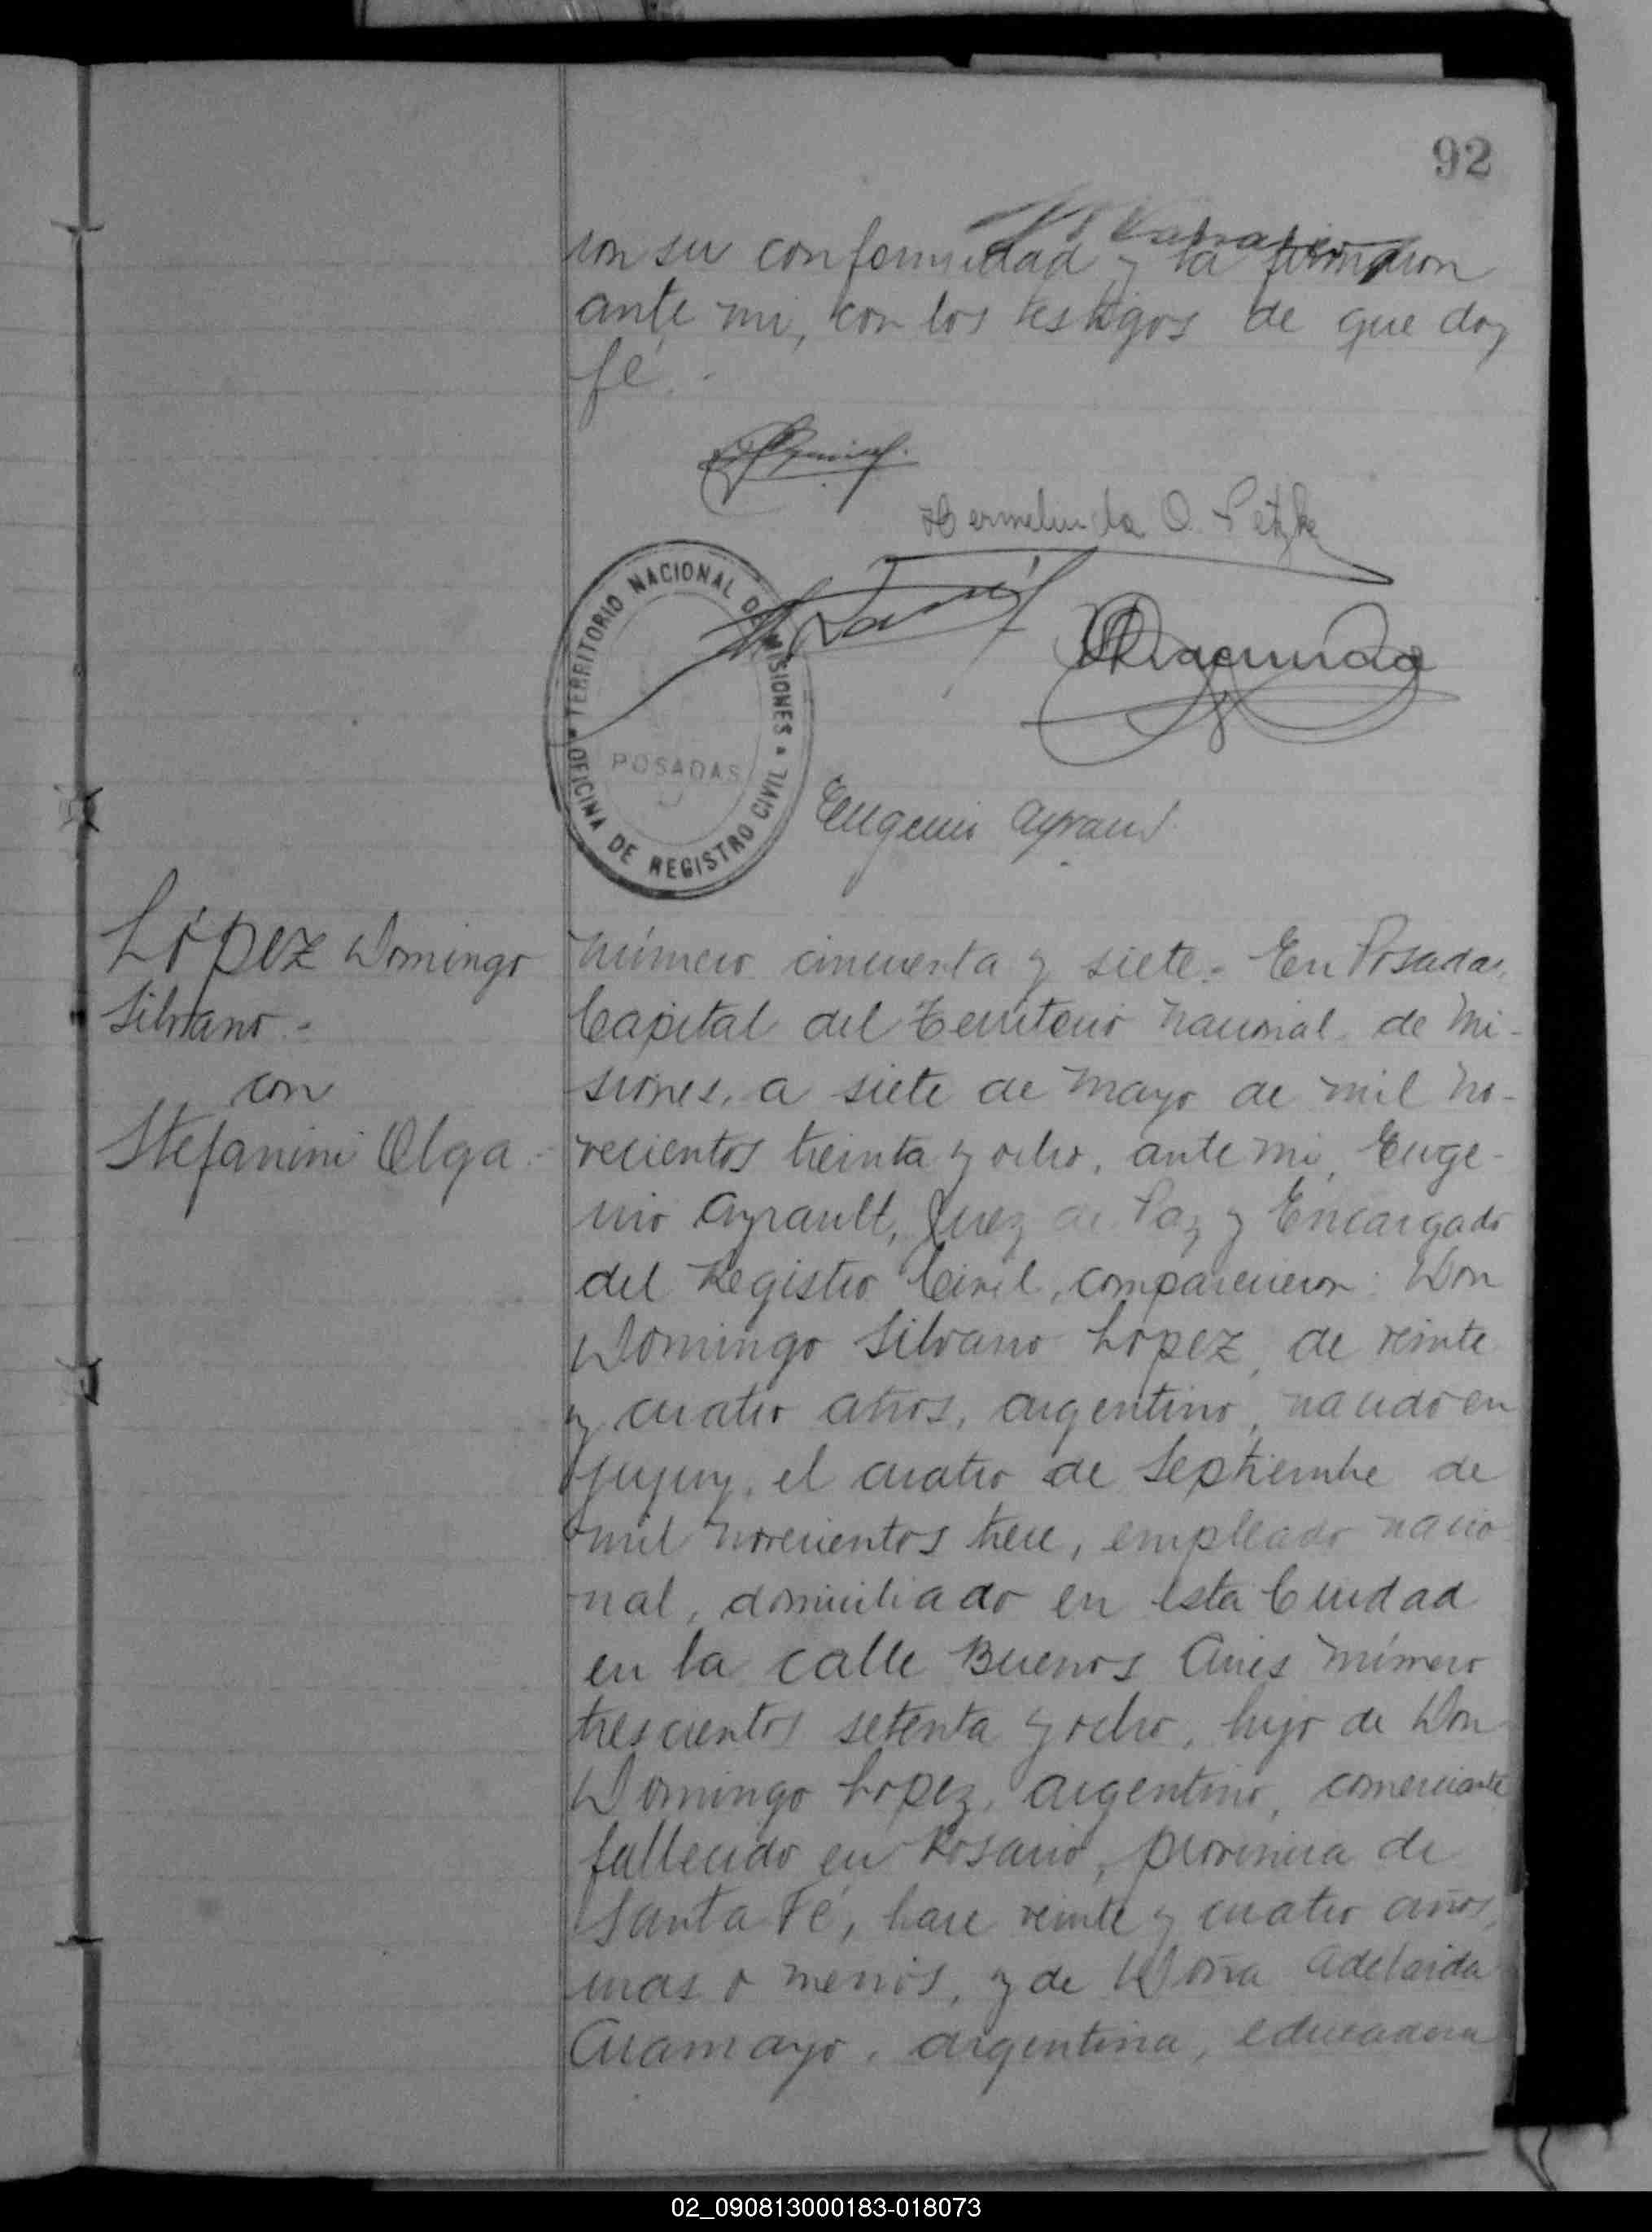 92
ron su conformidad y la firmaron
ante mi, con los testigos de que doy
fé.-
Hermelinda O. Petzke
TERRITORIO NACIONAL DE MISIONES
POSADAS
OFICINA DE REGISTRO CIVIL
Eugenio Ayrault
López Domingo
Silvano.-
con
Stefanini Olga.-
Número cincuenta y siete.- En Posadas,
Capital del Territorio Nacional de Mi-
siones, a siete de Mayo de mil no-
vecientos treinta y ocho, ante mi, Euge-
nio Ayrault, Juez de Paz y Encargado
del Registro Civil, comparecieron: Don
Domingo Silvano López, de veinte
y cuatro años, argentino, nacido en
Jujuy, el cuatro de Septiembre de
mil novecientos trece, empleado nacio
nal, domiciliado en esta Ciudad
en la calle Buenos Aires número
trescientos setenta y ocho, hijo de Don
Domingo López, argentino, comerciante
fallecido en Rosario, provincia de
Santa Fé, hace veinte y cuatro años,
mas o menos, y de Doña Adelaida
Aramayo, argentina, educadora
02_090813000183-018073